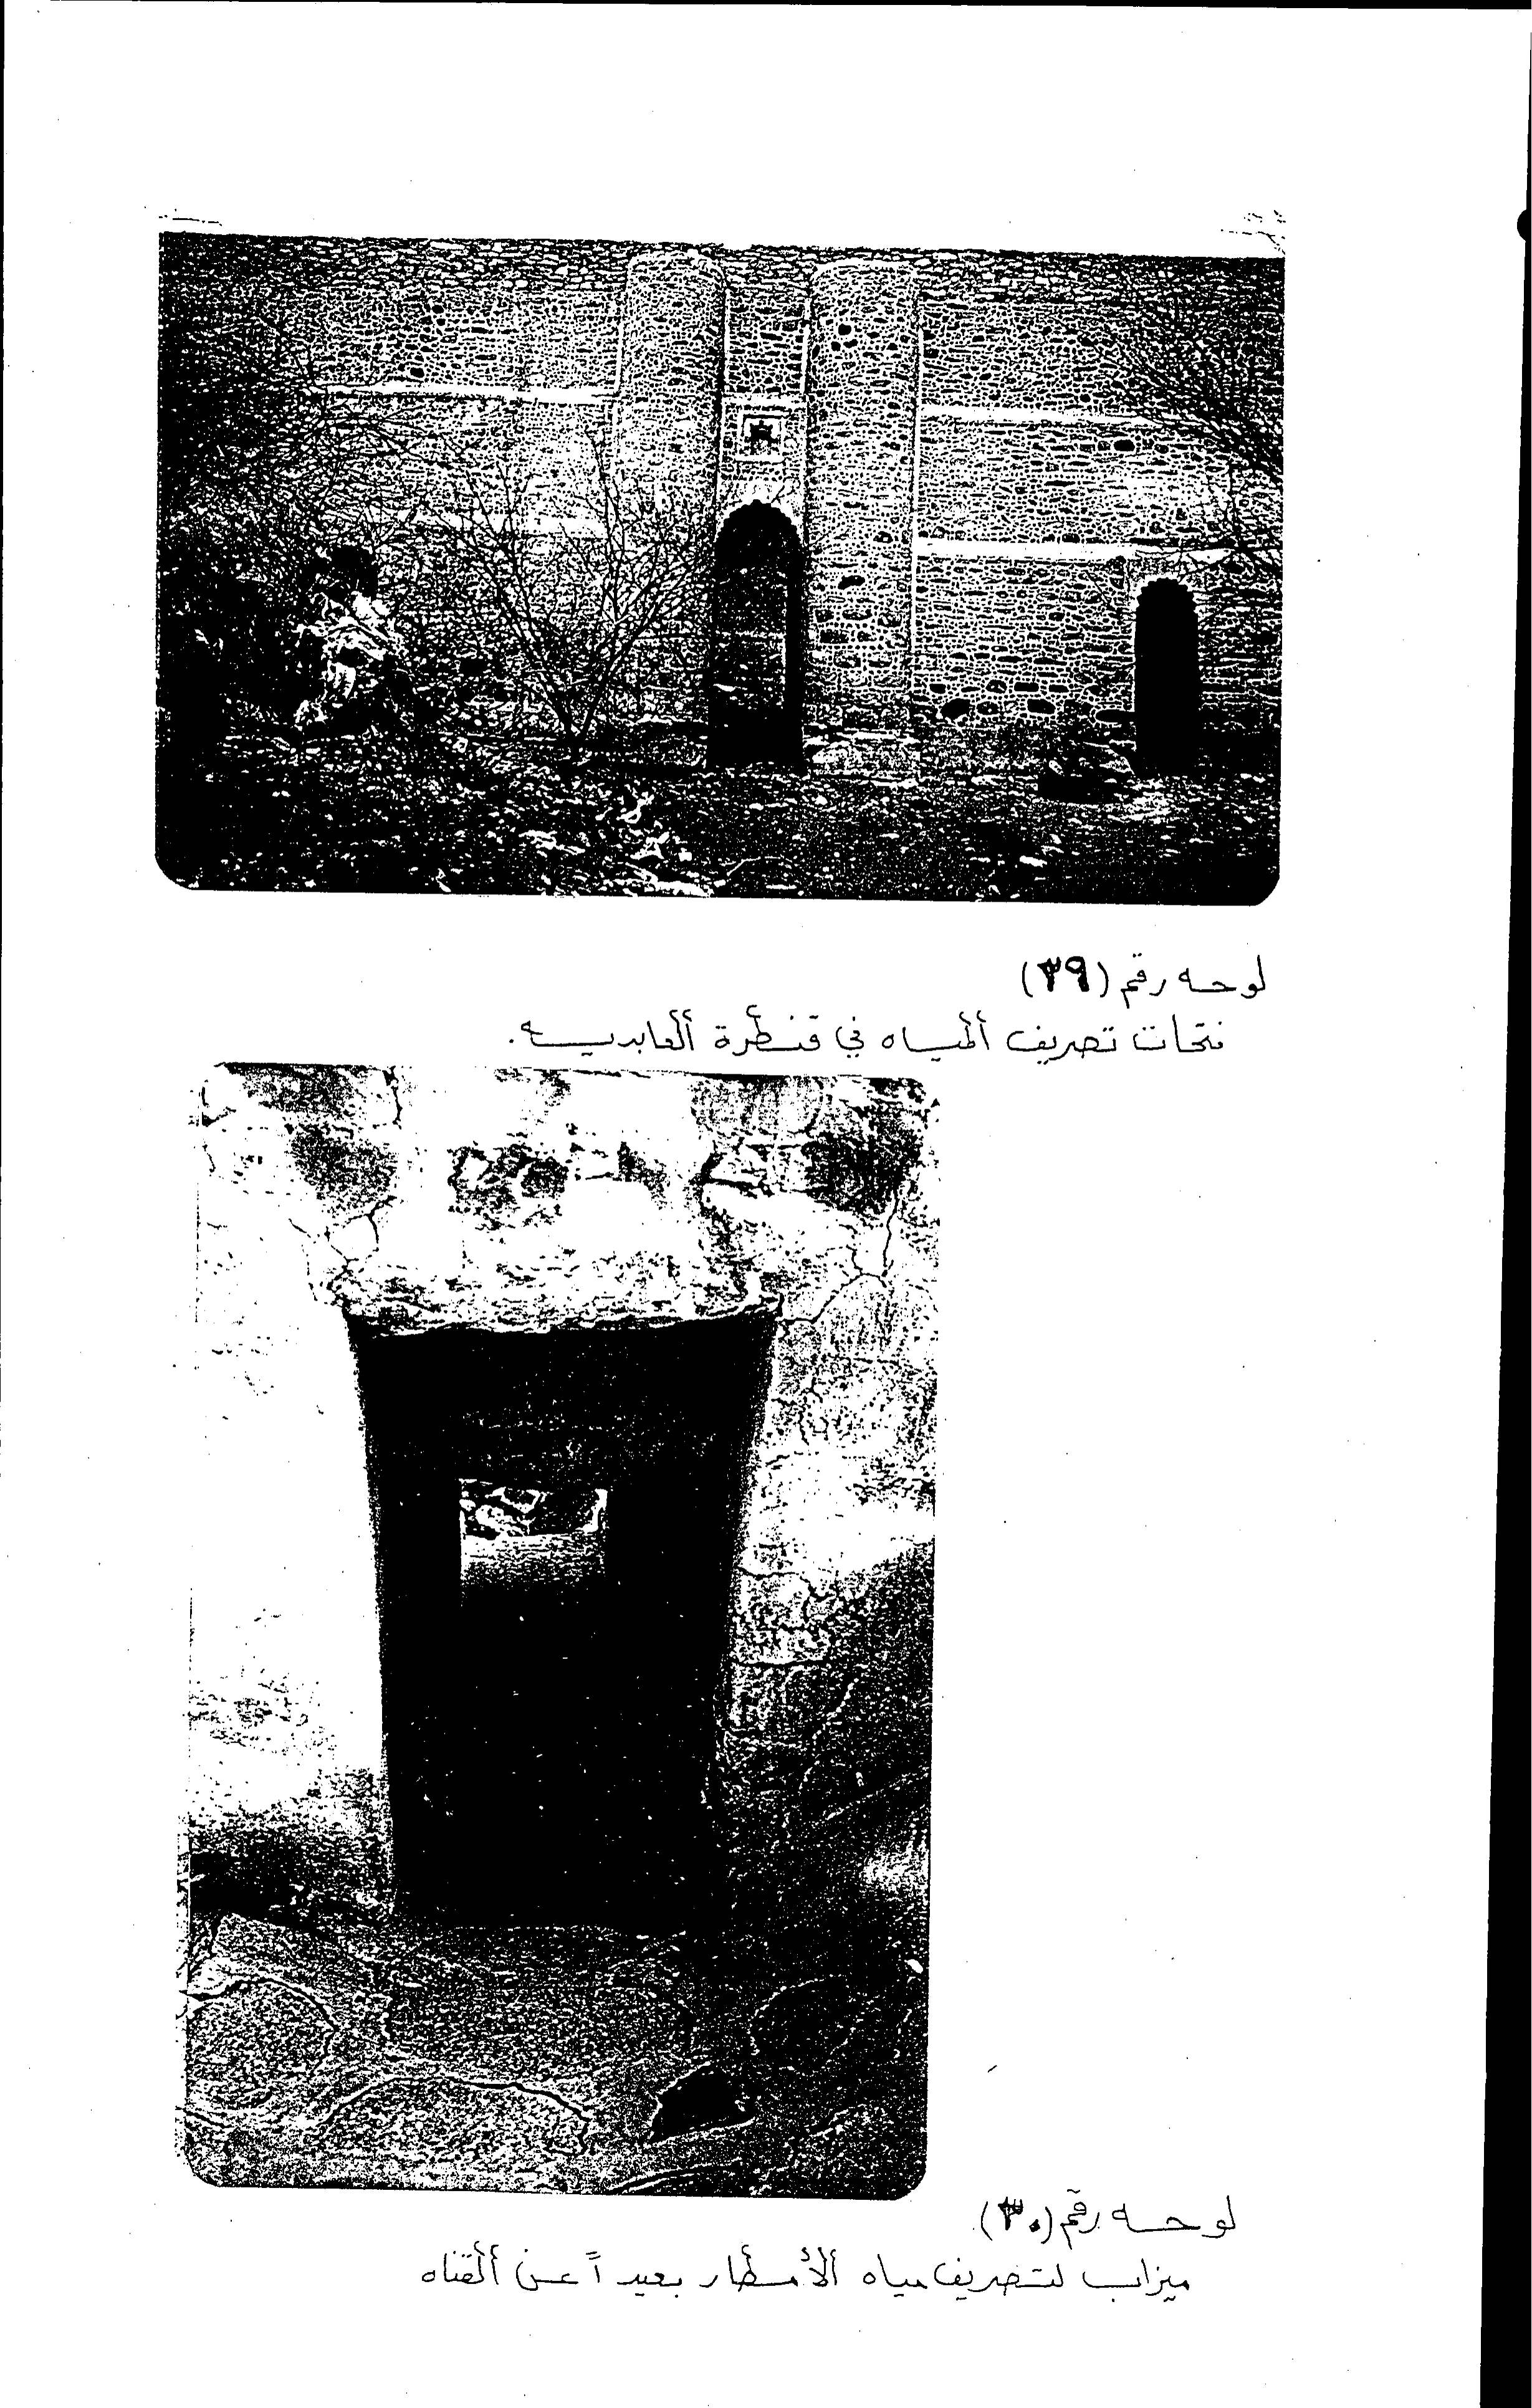 لوحه رقم (٢٩)
فتحات تصريف المياه في قنطرة العابديه.
لوحه رقم (٣٠)
ميزاب لتصريف مياه الأمطار بعيداً عن القناه